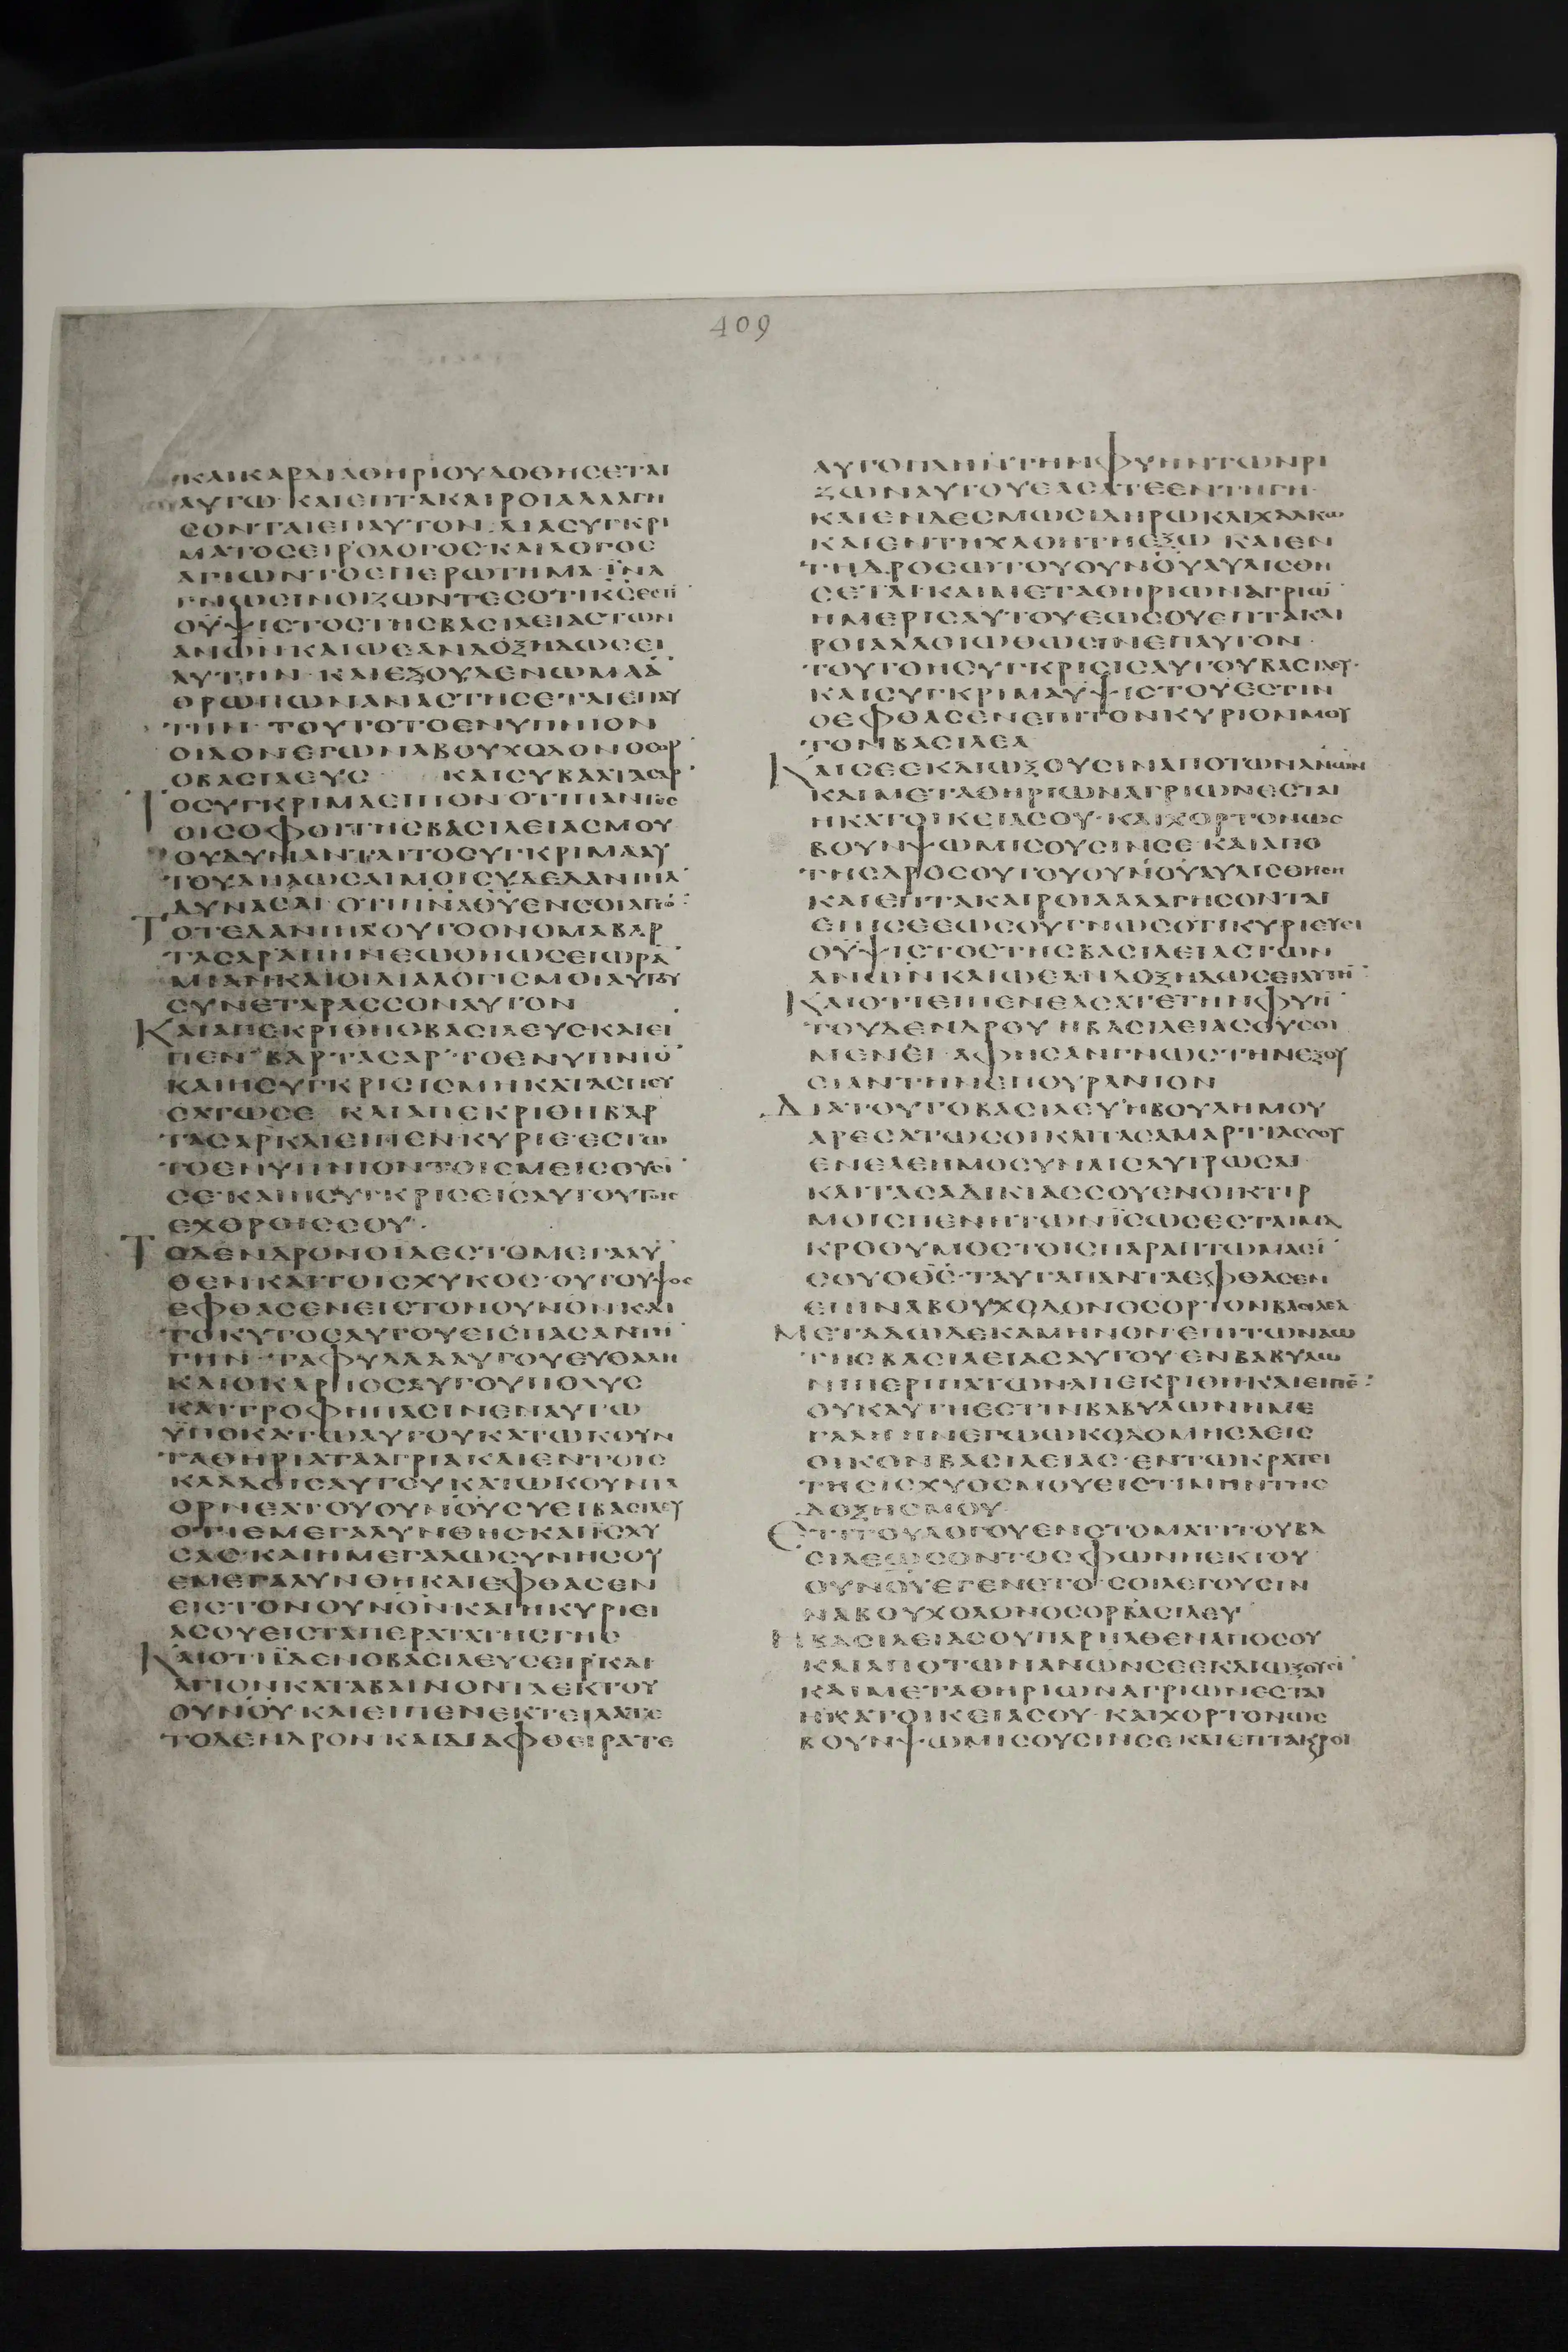 409
ΚΑΙΚΑΡΔΙΑΘΗΡΙΟΥΔΟΘΗΣΕΤΑΙ
ΑΥΤΩ ΚΑΙΕΠΤΑΚΑΙΡΟΙΑΛΛΑΓΗ
ΣΟΝΤΑΙΕΠΑΥΤΟΝ ΔΙΑΣΥΓΚΡΙ
ΜΑΤΟΣΕΙΡΟΛΟΓΟΣ ΚΑΙΛΟΓΟΣ
ΑΓΙΩΝΤΟΕΠΕΡΩΤΗΜΑ ΪΝΑ
ΓΝΩΣΙΝΟΙΖΩΝΤΕΣΟΤΙΚΣΕΣΤΙ
ΟΥΨΙΣΤΟΣΤΗΣΒΑΣΙΛΕΙΑΣΤΩΝ
ΑΝΩΝΚΑΙΩΕΑΝΔΟΞΗΔΩΣΕΙ
ΑΥΤΗΝ ΚΑΙΕΞΟΥΔΕΝΩΜΑΑ
ΘΡΩΠΩΝΑΝΑΣΤΗΣΕΤΑΙΕΠΑΥ
ΤΗΝ ΤΟΥΤΟΤΟΕΝΥΠΝΙΟΝ
ΟΙΔΟΝΕΓΩΝΑΒΟΥΧΟΔΟΝΟΣΟΡ
ΟΒΑΣΙΛΕΥΣ ΚΑΙΣΥΒΑΛΤΑΣΑΡ
ΤΟΣΥΓΚΡΙΜΑΕΙΠΟΝ ΟΤΙΠΑΝΤΕΣ
ΟΙΣΟΦΟΙΤΗΣΒΑΣΙΛΕΙΑΣΜΟΥ
ΟΥΔΥΝΑΝΤΑΙΤΟΣΥΓΚΡΙΜΑΑΥ
ΤΟΥΔΗΛΩΣΑΙΜΟΙΣΥΔΕΔΑΝΙΗΛ
ΔΥΝΑΣΑΙ ΟΤΙΠΝΑΘΥΕΝΣΟΙΑΓΙΟ
ΤΟΤΕΔΑΝΙΗΛΟΥΤΟΟΝΟΜΑΒΑΡ
ΤΑΣΑΡΑΠΗΝΕΩΘΗΩΣΕΙΩΡΑ
ΜΙΑΝΚΑΙΟΙΔΙΑΛΟΓΙΣΜΟΙΑΥΤΟΥ
ΣΥΝΕΤΑΡΑΣΣΟΝΑΥΤΟΝ
ΚΑΙΑΠΕΚΡΙΘΗΟΒΑΣΙΛΕΥΣΚΑΙΕΙ
ΠΕΝ ΒΑΡΤΑΣΑΡ ΤΟΕΝΥΠΝΙΟ
ΚΑΙΗΣΥΓΚΡΙΣΙΣΜΗΚΑΤΑΣΠΕΥ
ΣΑΤΩΣΕ ΚΑΙΑΠΕΚΡΙΘΗΒΑΡ
ΤΑΣΑΡΚΑΙΕΙΠΕΝ ΚΥΡΙΕ ΕΣΤΩ
ΤΟΕΝΥΠΝΙΟΝ ΤΟΙΣΜΕΙΣΟΥΣΙ
ΣΕ ΚΑΙΗΣΥΓΚΡΙΣΕΙΣΑΥΤΟΥΤΟΙΣ
ΕΧΘΡΟΙΣΣΟΥ
ΤΟΔΕΝΔΡΟΝΟΙΔΕΣΤΟΜΕΓΑΛΥ
ΘΕΝΚΑΙΤΟΙΣΧΥΚΟΣ ΟΥΤΟΥΨΟΣ
ΕΦΘΑΣΕΝΕΙΣΤΟΝΟΥΝΟΝΚΑΙ
ΤΟΚΥΤΟΣΑΥΤΟΥΕΙΣΠΑΣΑΝΤΗ
ΓΗΝ ΤΑΦΥΛΛΑΑΥΤΟΥΕΥΘΑΛΗ
ΚΑΙΟΚΑΡΠΟΣΑΥΤΟΥΠΟΛΥΣ
ΚΑΙΤΡΟΦΗΠΑΣΙΝΕΝΑΥΤΩ
ΫΠΟΚΑΤΩΑΥΤΟΥΚΑΤΩΚΟΥΝ
ΤΑΘΗΡΙΑΤΑΑΓΡΙΑΚΑΙΕΝΤΟΙΣ
ΚΛΑΔΟΙΣΑΥΤΟΥΚΑΤΩΚΟΥΝΤΑ
ΟΡΝΕΑΤΟΥΟΥΝΟΥΣΥΕΙΒΑΣΙΛΕΥ
ΟΤΙΕΜΕΓΑΛΥΝΘΗΣΚΑΙΪΣΧΥ
ΣΑΣ ΚΑΙΗΜΕΓΑΛΩΣΥΝΗΣΟΥ
ΕΜΕΓΑΛΥΝΘΗΚΑΙΕΦΘΑΣΕΝ
ΕΙΣΤΟΝΟΥΝΟΝ ΚΑΙΗΚΥΡΙΕΙ
ΑΣΟΥΕΙΣΤΑΠΕΡΑΤΑΤΗΣΓΗΣ
ΚΑΙΟΤΙΪΔΕΝΟΒΑΣΙΛΕΥΣΕΙΡΚΑΙ
ΑΓΙΟΝΚΑΤΑΒΑΙΝΟΝΤΑΕΚΤΟΥ
ΟΥΝΟΥ ΚΑΙΕΙΠΕΝΕΚΤΕΙΛΑΤΕ
ΤΟΔΕΝΔΡΟΝ ΚΑΙΔΙΑΦΘΕΙΡΑΤΕ
ΑΥΤΟΠΛΗΝΤΗΝΦΥΗΝΤΩΝΡΙ
ΖΩΝΑΥΤΟΥΕΑΣΑΤΕΕΝΤΗΓΗ
ΚΑΙΕΝΔΕΣΜΩΣΙΔΗΡΩΚΑΙΧΑΛΚΩ
ΚΑΙΕΝΤΗΧΛΟΗΤΗΕΞΩ ΚΑΙΕΝ
ΤΗΔΡΟΣΩΤΟΥΟΥΝΟΥΑΥΛΙΣΘΗ
ΣΕΤΑΙ ΚΑΙΜΕΤΑΘΗΡΙΩΝΑΓΡΙΩ
ΗΜΕΡΙΣΑΥΤΟΥΕΩΣΟΥΕΠΤΑΚΑΙ
ΡΟΙΑΛΛΟΙΩΘΩΣΙΝΕΠΑΥΤΟΝ
ΤΟΥΤΟΗΣΥΓΚΡΙΣΙΣΑΥΤΟΥΒΑΣΙΛΕΥ
ΚΑΙΣΥΓΚΡΙΜΑΥΨΙΣΤΟΥΕΣΤΙΝ
ΟΕΦΘΑΣΕΝΕΠΙΤΟΝΚΥΡΙΟΝΜΟΥ
ΤΟΝΒΑΣΙΛΕΑ
ΚΑΙΣΕΕΚΔΙΩΞΟΥΣΙΝΑΠΟΤΩΝΑΝΩΝ
ΚΑΙΜΕΤΑΘΗΡΙΩΝΑΓΡΙΩΝΕΣΤΑΙ
ΗΚΑΤΟΙΚΕΙΑΣΟΥ ΚΑΙΧΟΡΤΟΝΩΣ
ΒΟΥΝΨΩΜΙΣΟΥΣΙΝΣΕ ΚΑΙΑΠΟ
ΤΗΣΔΡΟΣΟΥΤΟΥΟΥΝΟΥΑΥΛΙΣΘΗΣΗ
ΚΑΙΕΠΤΑΚΑΙΡΟΙΑΛΛΑΓΗΣΟΝΤΑΙ
ΕΠΙΣΕΕΩΣΟΥΓΝΩΣΟΤΙΚΥΡΙΕΥΕΙ
ΟΥΨΙΣΤΟΣΤΗΣΒΑΣΙΛΕΙΑΣΤΩΝ
ΑΝΩΝΚΑΙΩΕΑΝΔΟΞΗΔΩΣΕΙΑΥΤΗ
ΚΑΙΟΤΙΕΙΠΕΝΕΑΣΑΤΕΤΗΝΦΥΗ
ΤΟΥΔΕΝΔΡΟΥ ΗΒΑΣΙΛΕΙΑΣΟΥΣΟΙ
ΜΕΝΕΙ ΑΦΗΣΑΝΓΝΩΣΤΗΝΕΞΟΥ
ΣΙΑΝΤΗΝΕΠΟΥΡΑΝΙΟΝ
ΔΙΑΤΟΥΤΟΒΑΣΙΛΕΥΗΒΟΥΛΗΜΟΥ
ΑΡΕΣΑΤΩΣΟΙΚΑΙΤΑΣΑΜΑΡΤΙΑΣΣΟΥ
ΕΝΕΛΕΗΜΟΣΥΝΑΙΣΛΥΤΡΩΣΑΙ
ΚΑΙΤΑΣΑΔΙΚΙΑΣΣΟΥΕΝΟΙΚΤΙΡ
ΜΟΙΣΠΕΝΗΤΩΝΪΣΩΣΕΣΤΑΙΜΑ
ΚΡΟΘΥΜΟΣΤΟΙΣΠΑΡΑΠΤΩΜΑΣΙ
ΣΟΥΟΘΣ ΤΑΥΤΑΠΑΝΤΑΕΦΘΑΣΕΝ
ΕΠΙΝΑΒΟΥΧΟΔΟΝΟΣΟΡΤΟΝΒΑΣΙΛΕΑ
ΜΕΤΑΔΩΔΕΚΑΜΗΝΟΝ ΕΠΙΤΩΝΑΩ
ΤΗΣΒΑΣΙΛΕΙΑΣΑΥΤΟΥ ΕΝΒΑΒΥΛΩ
ΝΙΠΕΡΙΠΑΤΩΝΑΠΕΚΡΙΘΗΚΑΙΕΙΠΕ
ΟΥΚΑΥΤΗΕΣΤΙΝΒΑΒΥΛΩΝΗΜΕ
ΓΑΛΗΗΝΕΓΩΩΚΟΔΟΜΗΣΑΕΙΣ
ΟΙΚΟΝΒΑΣΙΛΕΙΑΣ ΕΝΤΩΚΡΑΤΕΙ
ΤΗΣΙΣΧΥΟΣΜΟΥΕΙΣΤΙΜΗΝΤΗΣ
ΔΟΞΗΣΜΟΥ
ΕΤΙΤΟΥΛΟΓΟΥΕΝΣΤΟΜΑΤΙΤΟΥΒΑ
ΣΙΛΕΩΣΟΝΤΟΣΦΩΝΗΕΚΤΟΥ
ΟΥΝΟΥΕΓΕΝΕΤΟ ΣΟΙΛΕΓΟΥΣΙΝ
ΝΑΒΟΥΧΟΔΟΝΟΣΟΡΒΑΣΙΛΕΥ
ΗΒΑΣΙΛΕΙΑΣΟΥΠΑΡΗΛΘΕΝΑΠΟΣΟΥ
ΚΑΙΑΠΟΤΩΝΑΝΩΝΣΕΕΚΔΙΩΞΟΥΣΙ
ΚΑΙΜΕΤΑΘΗΡΙΩΝΑΓΡΙΩΝΕΣΤΑΙ
ΗΚΑΤΟΙΚΕΙΑΣΟΥ ΚΑΙΧΟΡΤΟΝΩΣ
ΒΟΥΝΨΩΜΙΣΟΥΣΙΝΣΕ ΚΑΙΕΠΤΑΚΑΙΡΟΙ